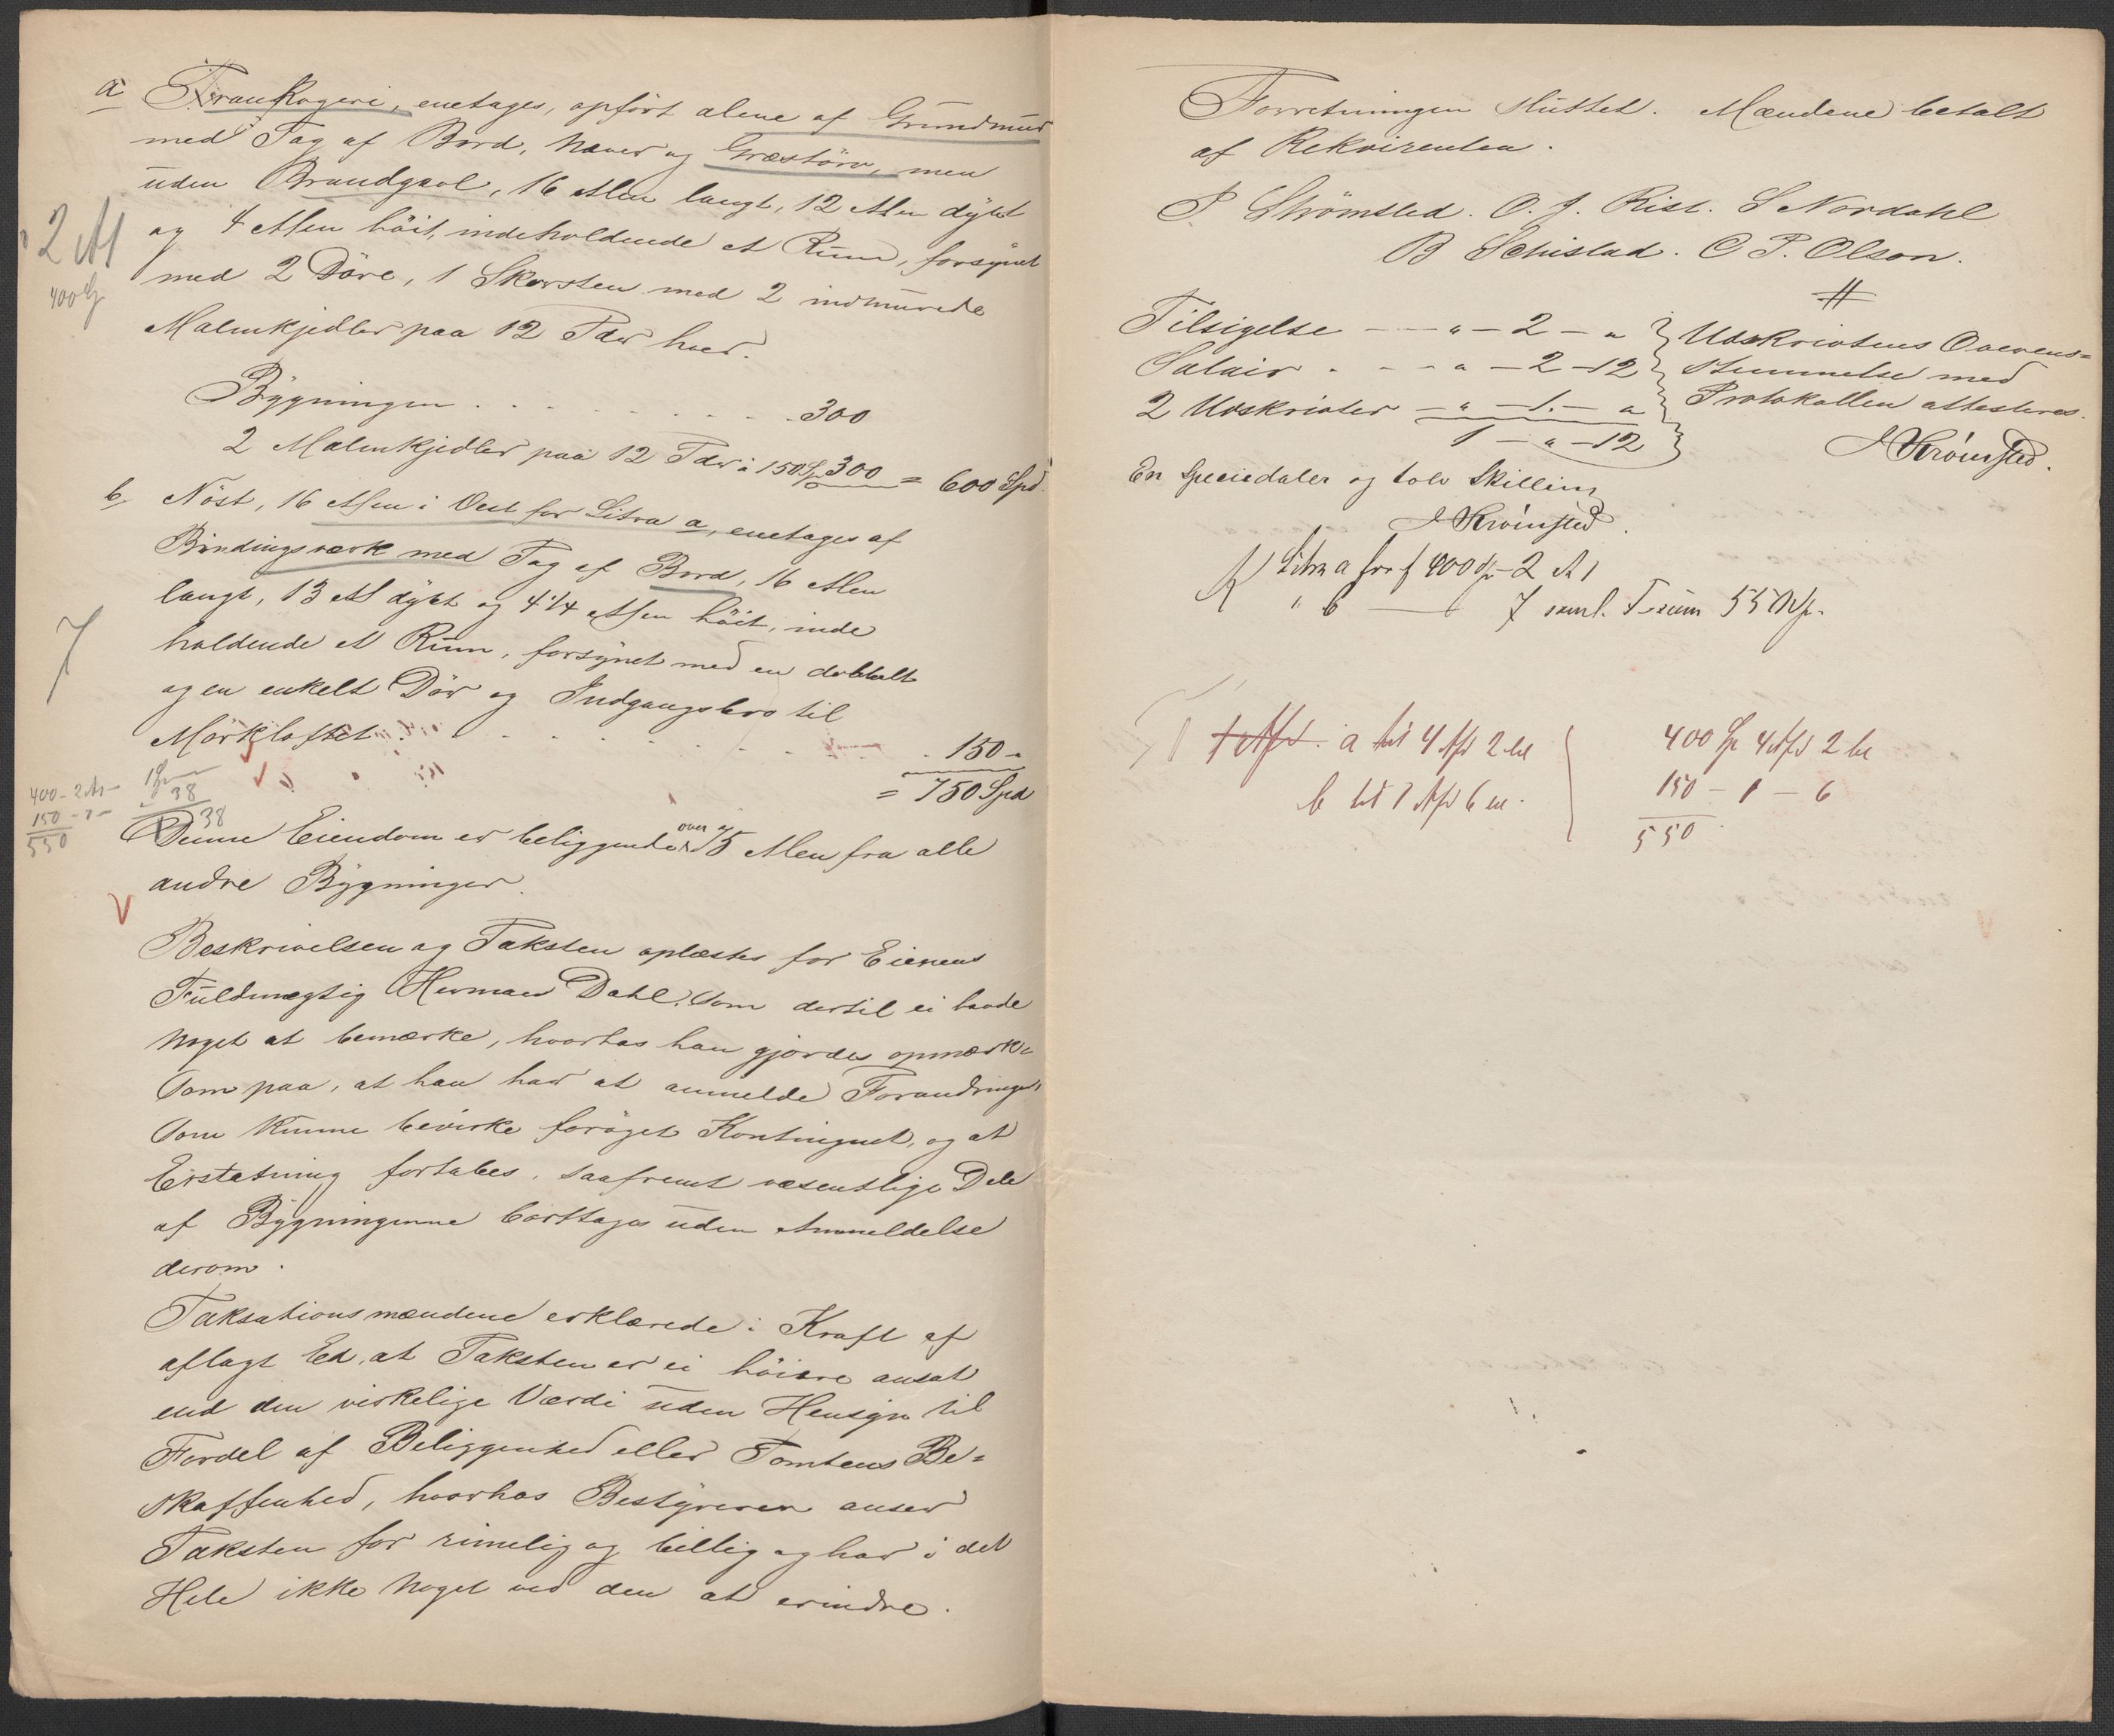 a Trankogeri, enetages, opført alene af Grundmur
med Tag af Bord, Næver og Græstörv, men
uden Brandgavl, 16 Alen langt, 12 Alen dybt
og 4 Alen höit, indeholdende et Rum, forsynet
med 2 Döre, 1 Skorsten med 2 indmurede
Malmkjedler paa 12 Tdr hver.
2 Al
400 Sp
Bygningen . . . . . . . . . 300
2 Malmkjedler paa 12 Tdr à 150 Sp 300 = 600 Spd.
b. Nöst, 16 Alen i Vest for Litra a, enetages af
Bindingsværk med Tag af Bord, 16 Alen
langt, 13 Al dybt og 4 1/4 Alen höit, inde
holdende et Rum, forsynet med en dobbelt
og en enkelt Dör og Indgangsbro til
Mörkloftet . . . . . . . . 150 "
7
= 750 Spd
400 - 2
150 - 7 -
550
38
38
Denne Eiendom er beliggende over 75 Alen fra alle
andre Bygninger.
Beskrivelsen og Taksten oplæstes for Eierens
Fuldmægtig Herman Dahl, som dertil ei havde
Noget at bemærke, hvorhos han gjordes opmærk=
som paa, at han har at anmelde Forandringer
som kunne bevirke foröget Kontingent, og at
Erstatning fortabes, saafremt væsentlige Dele
af Bygningerne borttages uden Anmeldelse
derom.
Taksationsmændene erklærede i Kraft af
aflagt Ed, at Taksten er ei höiere ansat
end den virkelige Værdi uden Hensyn til
Fordel af Beliggenhed eller Tomtens Be=
skaffenhed, hvorhos Bestyreren anser
Taksten for rimelig og billig og har i det
Hele ikke Noget ved den at erindre.
Forretningen sluttet. Mændene betalt
af Rekvirenten.
P Strömsted. O. J. Rist. S Nordahl
B Schistad. O P. Olson.
#
Tilsigelse - " - 2 - "
Salair . - - " - 2 - 12
2 Udskrivter - " - 1. - "
1 - " - 12
Udskrivtens Overens=
stemmelse med
Protokollen attesteres.
Strömsted.
En Speciedaler og tolv Skilling
Strömsted.
Litra a for 400 Sp - 2 Al
" b — 7 saml. 550 Sp.
a til 4 2 kl
b til 1 6 kl.
400 Sp 4 2 kl
150 - 1 - 6
550